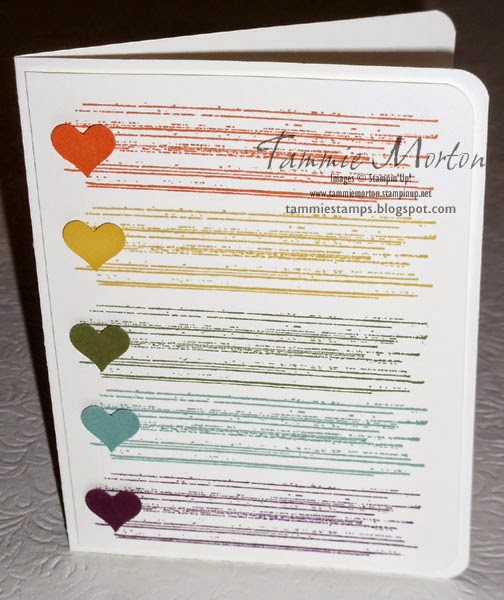 Tammie Morton
Images © Stampin'Up!
www.tammiemorton.stampinup.net
tammiestamps.blogspot.com